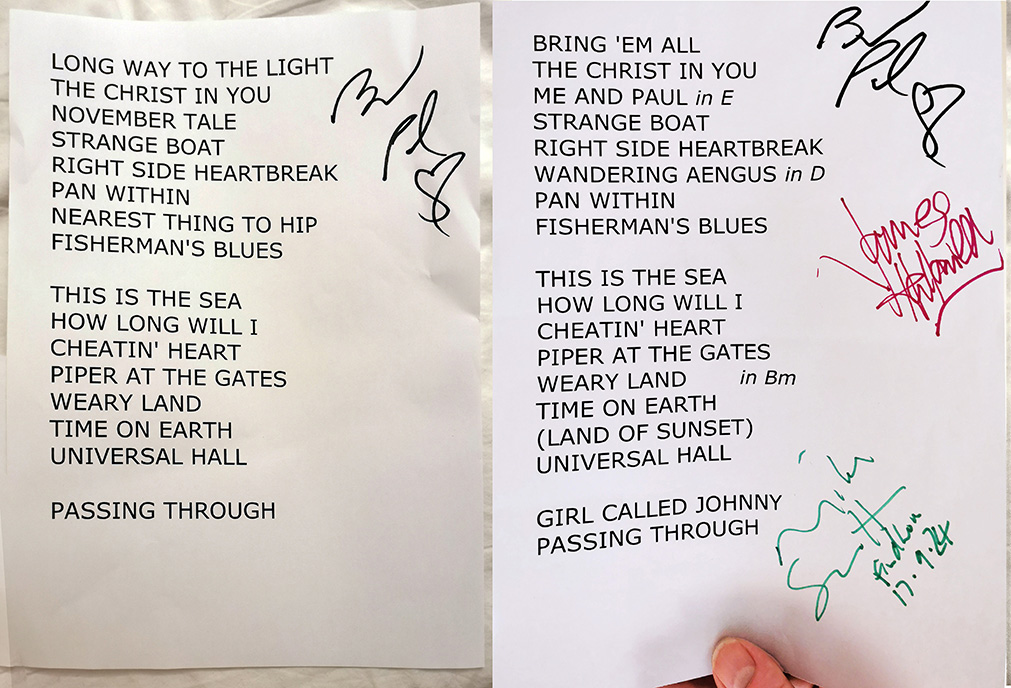 LONG WAY TO THE LIGHT
THE CHRIST IN YOU
NOVEMBER TALE
STRANGE BOAT
RIGHT SIDE HEARTBREAK
PAN WITHIN
NEAREST THING TO HIP
FISHERMAN'S BLUES
THIS IS THE SEA
HOW LONG WILL I
CHEATIN' HEART
PIPER AT THE GATES
WEARY LAND
TIME ON EARTH
UNIVERSAL HALL
PASSING THROUGH
BRING 'EM ALL
THE CHRIST IN YOU
ME AND PAUL in E
STRANGE BOAT
RIGHT SIDE HEARTBREAK
WANDERING AENGUS in D
PAN WITHIN
FISHERMAN'S BLUES
THIS IS THE SEA
HOW LONG WILL I
CHEATIN' HEART
PIPER AT THE GATES
WEARY LAND in Bm
TIME ON EARTH
(LAND OF SUNSET)
UNIVERSAL HALL
GIRL CALLED JOHNNY
PASSING THROUGH
James
Mike
Scott
Findhorn
17.9.24